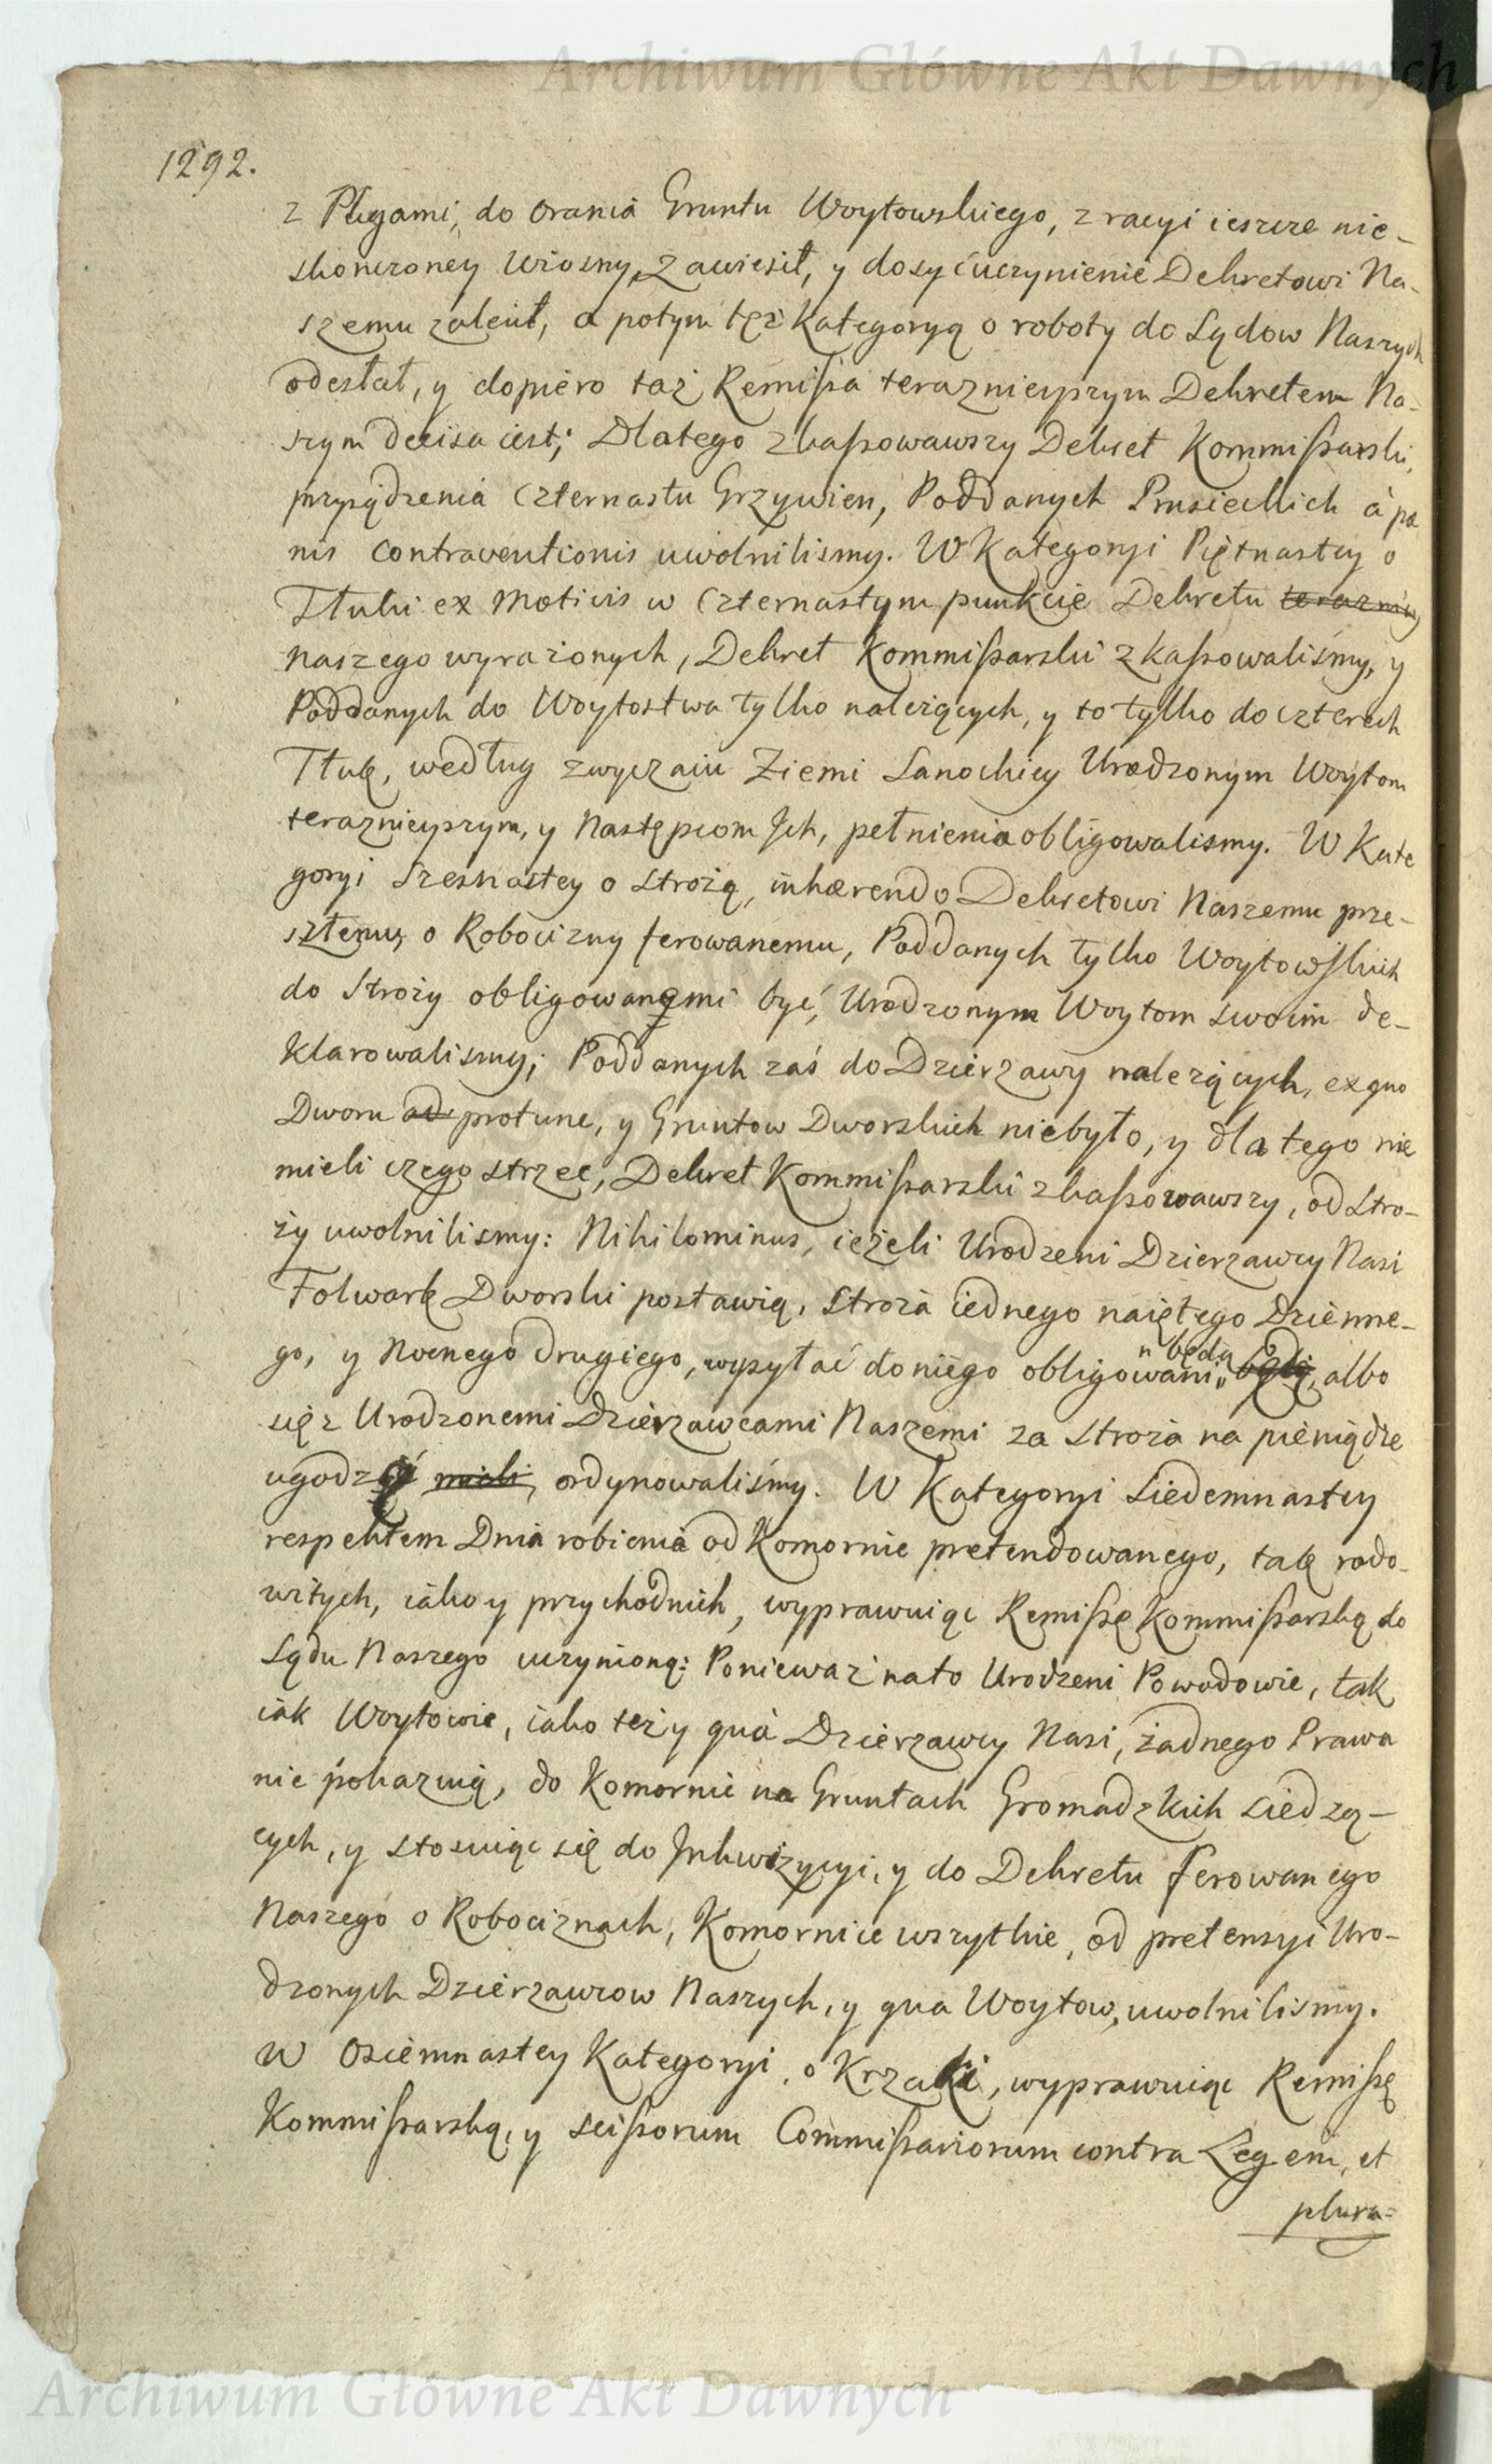 Archiwum Główne Akt Dawnych
1292.
z Pługami, do orania Gruntu Woytowskiego, z racyi ieszcze nie-
skonczoney Wiosny, zawiesił, y dosyć uczynienie Dekretowi Na-
szemu zalecił, a potym też Kategoryą o roboty do Sądow Naszych
odesłał, y dopiero taż Remissa teraznieyszym Dekretem Na-
szym decisa iest; Dlatego zkassowawszy Dekret Kommissarski,
przysądzenia Czternastu Grzywien, Poddanych Prusieckich à pæ
nis contraventionis uwolnilismy. W Kategoryi Piętnastey o
Tłuki ex Motivis w Czternastym punkcie Dekretu terazniey
naszego wyrażonych, Dekret Kommissarski zkassowaliśmy, y
Poddanych do Woytostwa tylko należących, y to tylko do czterech
Tłuk, według zwyczaiu Ziemi Sanockiey Urodzonym Woytom
teraznieyszym, y Następcom Ich, pełnienia obligowalismy. W Kate
goryi Szesnastey o Strożą, inhærendo Dekretowi Naszemu prze-
szłemu, o Robocizny ferowanemu, Poddanych tylko Woytowskich
do Stroży obligowanemi być, Urodzonym Woytom Swoim de-
klarowalismy; Poddanych zaś do Dzierzawy należących, ex quo
Dworu ad protunc, y Gruntow Dworskich niebyło, y dla tego nie
mieli czego strzec, Dekret Kommissarski zkassowawszy, od Stro-
ży uwolnilismy: Nihilominus, ieżeli Urodzeni Dzierzawcy Nasi
Folwark Dworski postawią, Stroża iednego naiętego Dzienne-
go, y Nocnego drugiego, wysyłać do niego obligowani " będą albo
się z Urodzonemi Dzierzawcami Naszemi za Stroża na pieniądze
ugodzą mieli, ordynowaliśmy. W Kategoryi Siedemnastey
respektem Dnia robienia od Komornic pretendowanego, tak rodo-
witych, iako y przychodnich, wyprawuiąc Remissę Kommissarską do
Sądu Naszego uczynioną: Ponieważ na to Urodzeni Powodowie, tak
iak Woytowie, iako też y quà Dzierzawcy Nasi, żadnego Prawa
nie pokazuią, do Komornic na Gruntach Gromadzkich siedzą-
cych, y stosuiąc się do Inkwizycyi, y do Dekretu ferowanego
Naszego o Robociznach, Komornice wszytkie, od pretensyi Uro-
dzonych Dzierzawcow Naszych, y qua Woytow, uwolnilismy.
W Osiemnastey Kategoryi, o Krzaki, wyprawuiąc Remissę
Kommissarską, y scissorum Commissariorum contra Legem, et
plura-
Archiwum Główne Akt Dawnych